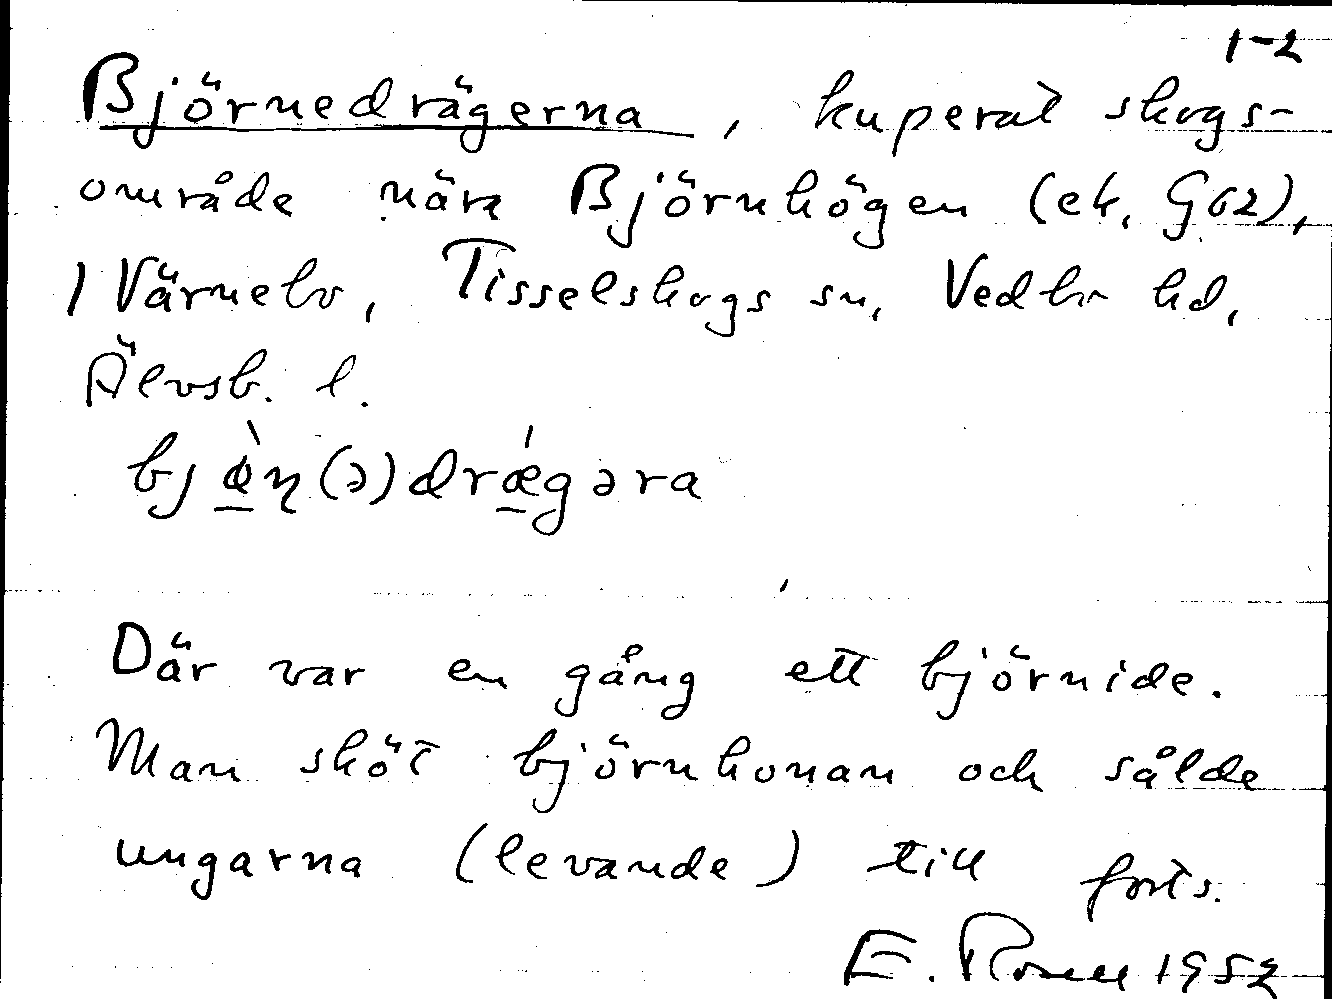 1-2
Björnedrägerna, kuperat skogs-
område nära Björnhögen (ek. G62),
i Värnebo, Tisselskogs sn, Vedbo hd,
Älvsb. l.
bjø̀ɳ(ə)drǽgəra
Där var en gång ett björnide.
Man sköt björnhonan och sålde
ungarna (levande) till forts.
E. 1952